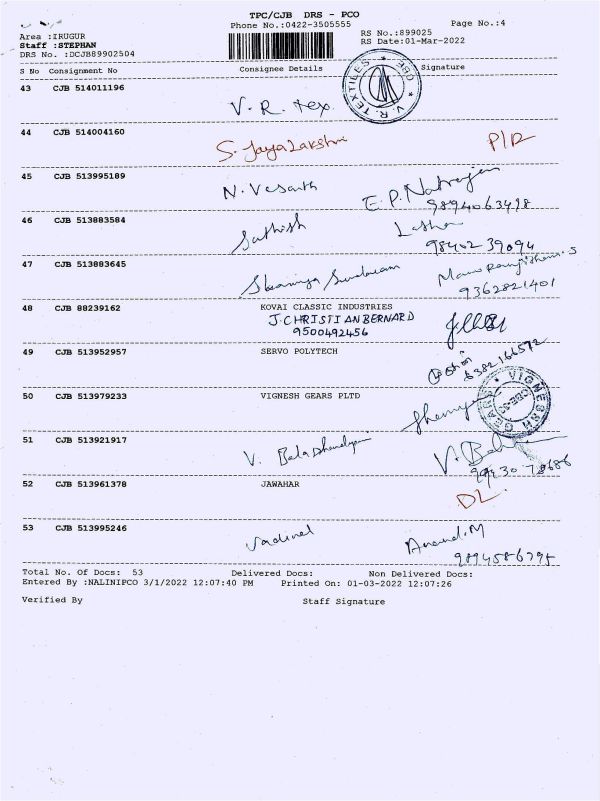 TPC/CJB DRS - PCO
Phone No.:0422-3505555
Page No.:4
Area :IRUGUR
Staff :STEPHAN
DRS No. :DCJB89902504
RS No.:899025
RS Date:01-Mar-2022
S No Consignment No Consignee Details Signature
43 CJB 514011196 V. R. tex.
V. R. TEXTILES * CBE *
44 CJB 514004160 S. Jayalakshmi P/R
45 CJB 513995189 N. Vesanth E. P. Natrajan
9894063498
46 CJB 513883584 Sathish Latha
98402 39094
47 CJB 513883645
9362821401
48 CJB 88239162 KOVAI CLASSIC INDUSTRIES
J. CHRISTIAN BERNARD
9500492456
49 CJB 513952957 SERVO POLYTECH
6382166572
50 CJB 513979233 VIGNESH GEARS PLTD
VIGNESH GEARS
51 CJB 513921917 V.
V.
52 CJB 513961378 JAWAHAR DL
53 CJB 513995246 Anand. M
9894586795
Total No. Of Docs: 53 Delivered Docs: Non Delivered Docs:
Entered By :NALINIPCO 3/1/2022 12:07:40 PM Printed On: 01-03-2022 12:07:26
Verified By Staff Signature